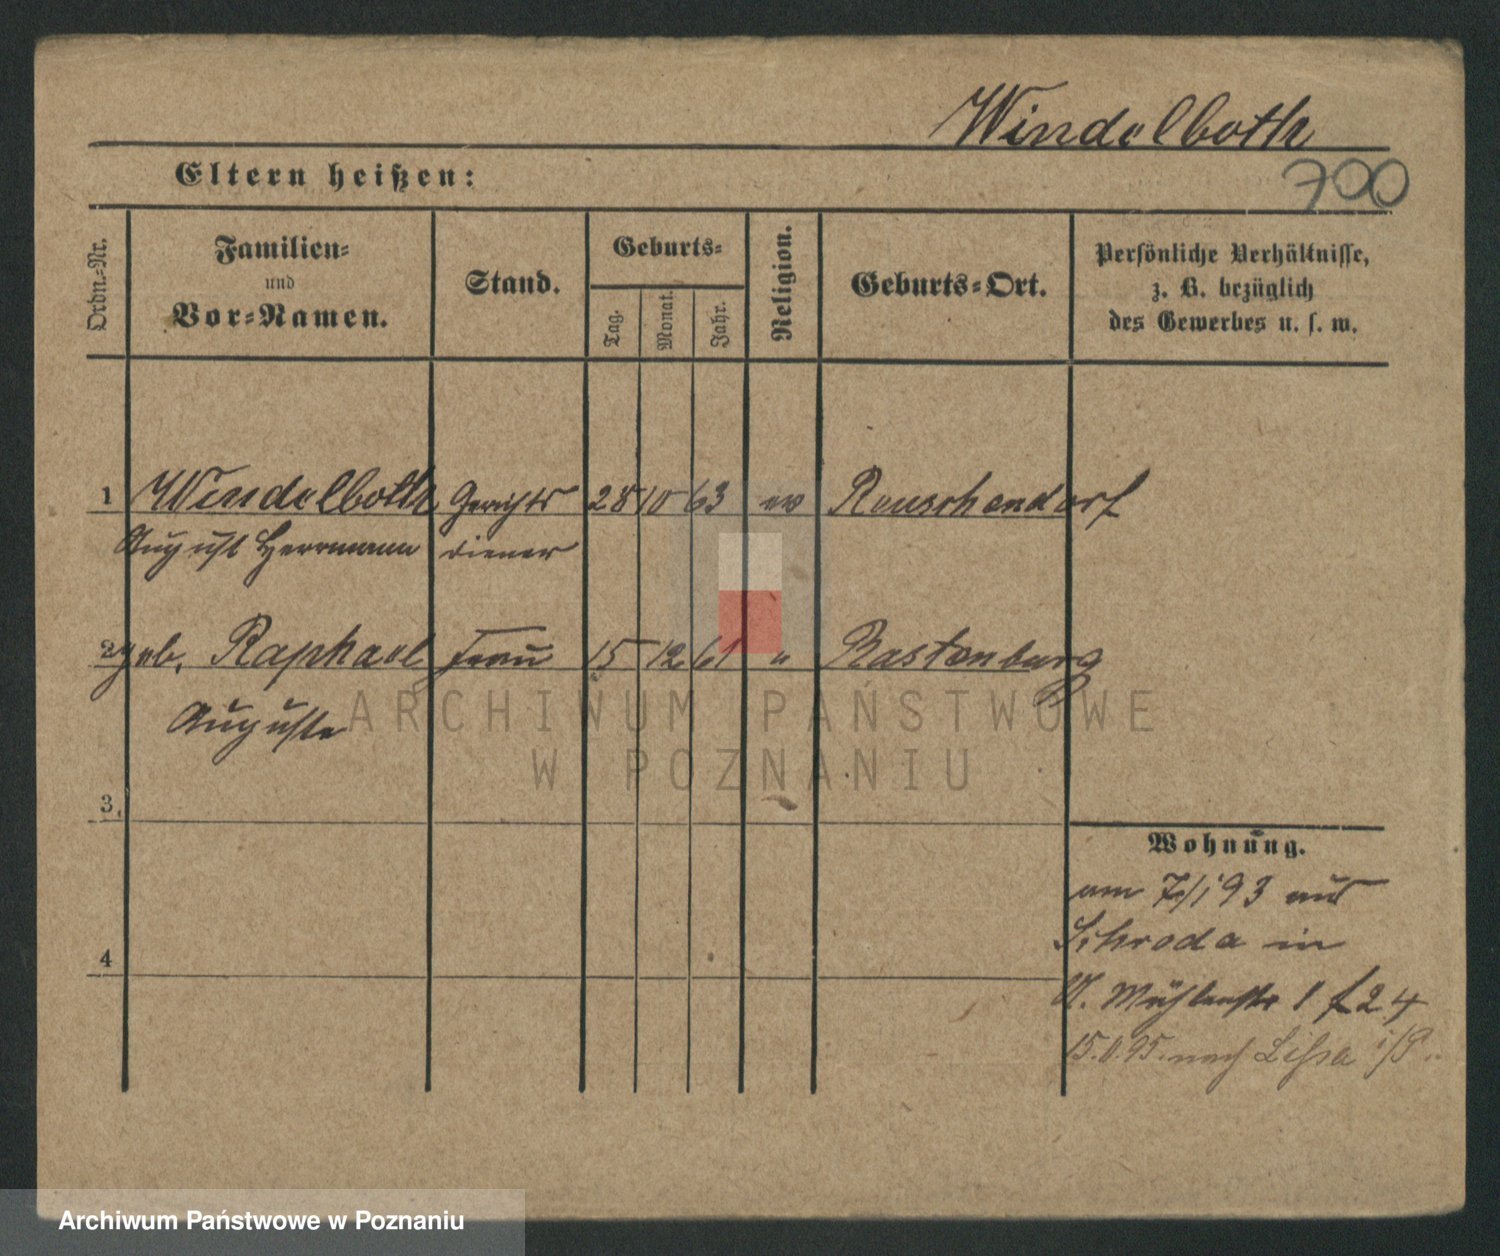 Windelboth
700
Eltern heißen:
Ordn.-Nr.
Familien-
und
Vor-Namen.
Stand.
Geburts-
Tag.
Monat.
Jahr.
Religion.
Geburts-Ort.
Persönliche Verhältnisse,
z. B. bezüglich
des Gewerbes u. s. w.
1 Windelboth Gerichts 28 10 63 ev Reuschendorf
August Herrmann diener
2 geb. Raphael Frau 15 12 61 " Rastenburg
Auguste
ARCHIWUM PAŃSTWOWE
W POZNANIU
3.
Wohnung.
am 7/1 93 aus
Schroda in
4
Mühlenstr 1 f 24
95. nach Lissa i/P.
Archiwum Państwowe w Poznaniu